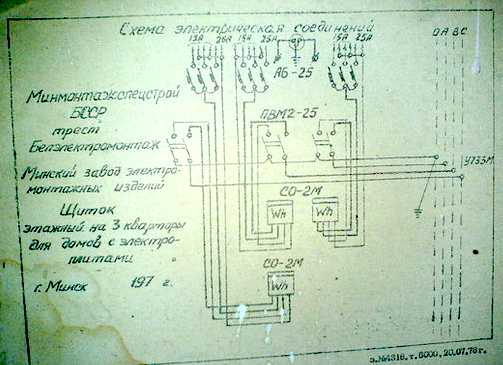 Схема электрическая соединений
15А 25А 15А 25А 15А 25А
0 А В С
АБ-25
Минмонтажспецстрой
БССР
трест
Белэлектромонтаж
ПВМ2-25
Минский завод электро-
монтажных изделий
У733М
Щиток
этажный на 3 квартиры
для домов с электро-
плитами
СО-2М
Wh
Wh
СО-2М
Wh
г. Минск 197 г.
з. №4316, т. 6000, 20.07.76 г.